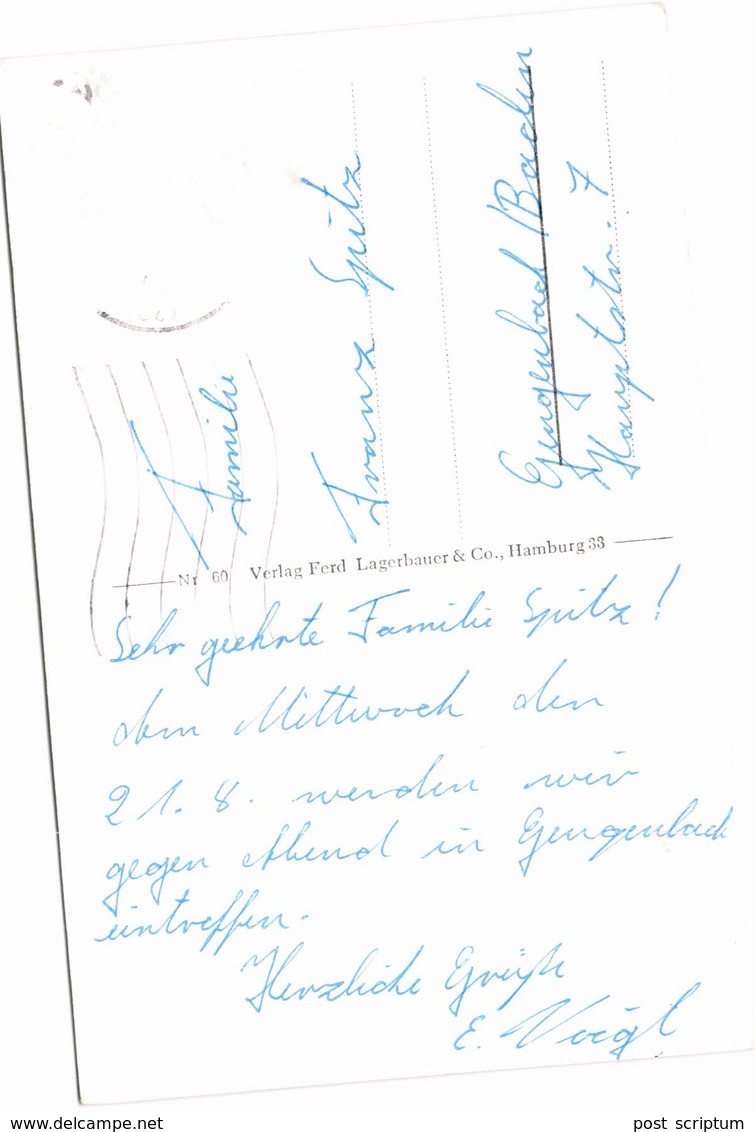 Familie
Franz Spitz
Gengenbach/Baden
Hauptstr. 7
Nr 60 Verlag Ferd Lagerbauer & Co., Hamburg 33
Sehr geehrte Familie Spitz!
Am Mittwoch den
21. 8. werden wir
gegen Abend in Gengenbach
eintreffen.
Herzliche Grüße
E. Voigt
www.delcampe.net
post scriptum